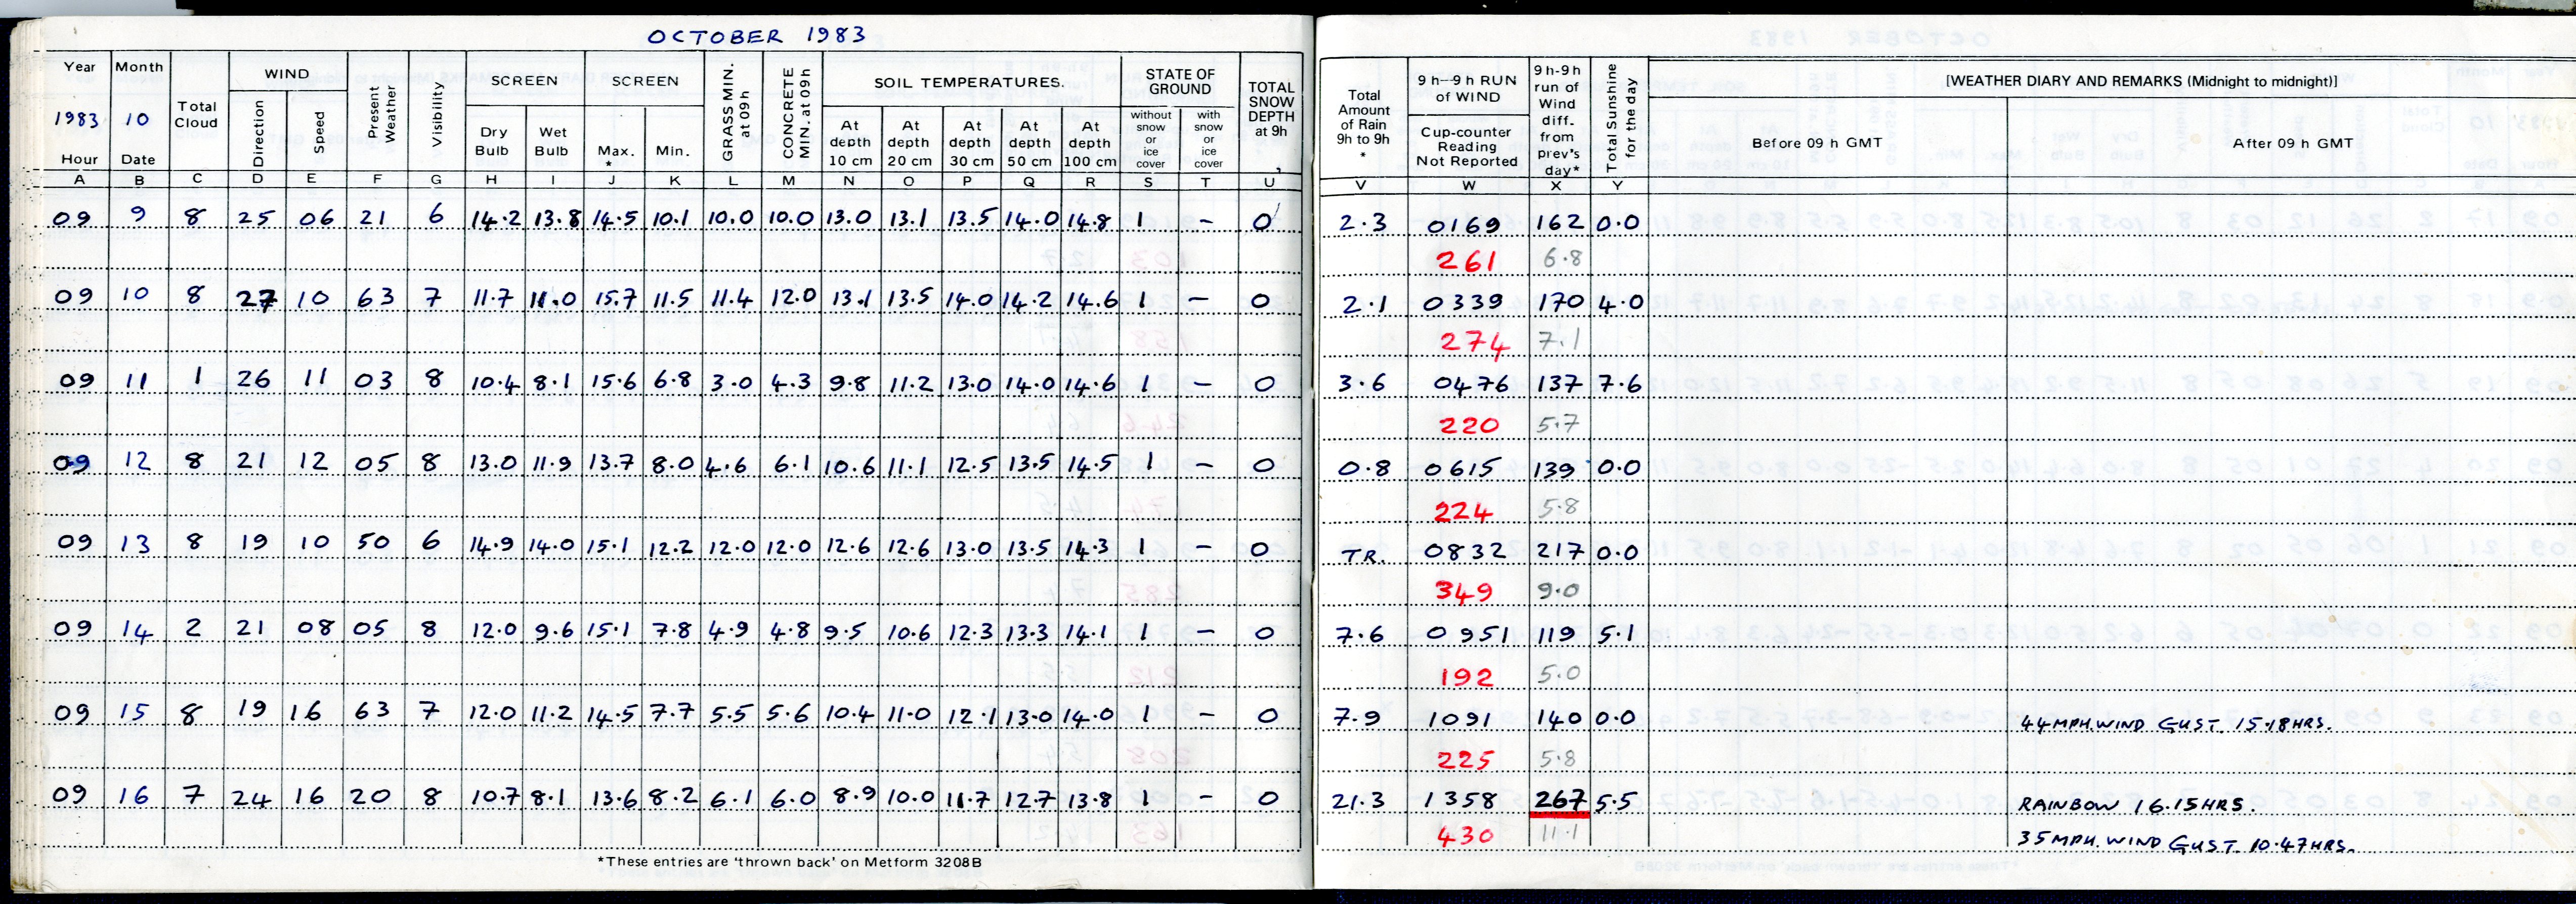 OCTOBER 1983
Year Month Total Cloud WIND Present Weather Visibility SCREEN SCREEN GRASS MIN. at 09h CONCRETE MIN. at 09h SOIL TEMPERATURES. STATE OF GROUND TOTAL SNOW DEPTH at 9h
1983 10 Direction Speed Dry Bulb Wet Bulb Max. * Min. At depth 10 cm At depth 20 cm At depth 30 cm At depth 50 cm At depth 100 cm without snow or ice cover with snow or ice cover
Hour Date
A B C D E F G H I J K L M N O P Q R S T U
09 9 8 25 06 21 6 14.2 13.8 14.5 10.1 10.0 10.0 13.0 13.1 13.5 14.0 14.8 1 – 0
09 10 8 27 10 63 7 11.7 11.0 15.7 11.5 11.4 12.0 13.1 13.5 14.0 14.2 14.6 1 – 0
09 11 1 26 11 03 8 10.4 8.1 15.6 6.8 3.0 4.3 9.8 11.2 13.0 14.0 14.6 1 – 0
09 12 8 21 12 05 8 13.0 11.9 13.7 8.0 4.6 6.1 10.6 11.1 12.5 13.5 14.5 1 – 0
09 13 8 19 10 50 6 14.9 14.0 15.1 12.2 12.0 12.0 12.6 12.6 13.0 13.5 14.3 1 – 0
09 14 2 21 08 05 8 12.0 9.6 15.1 7.8 4.9 4.8 9.5 10.6 12.3 13.3 14.1 1 – 0
09 15 8 19 16 63 7 12.0 11.2 14.5 7.7 5.5 5.6 10.4 11.0 12.1 13.0 14.0 1 – 0
09 16 7 24 16 20 8 10.7 8.1 13.6 8.2 6.1 6.0 8.9 10.0 11.7 12.7 13.8 1 – 0
*These entries are 'thrown back' on Metform 3208B
Total Amount of Rain 9h to 9h * 9 h–9 h RUN of WIND Cup-counter Reading Not Reported 9 h-9h run of Wind diff. from prev's day* Total Sunshine for the day [WEATHER DIARY AND REMARKS (Midnight to midnight)]
Before 09 h GMT After 09 h GMT
V W X Y
2.3 0169 162 0.0
261 6.8
2.1 0339 170 4.0
274 7.1
3.6 0476 137 7.6
220 5.7
0.8 0615 139 0.0
224 5.8
TR. 0832 217 0.0
349 9.0
7.6 0951 119 5.1
192 5.0
7.9 1091 140 0.0 44 MPH. WIND GUST 15.18HRS.
225 5.8
21.3 1358 267 5.5 RAINBOW 16.15HRS.
430 11.1 35 MPH. WIND GUST 10.47HRS.